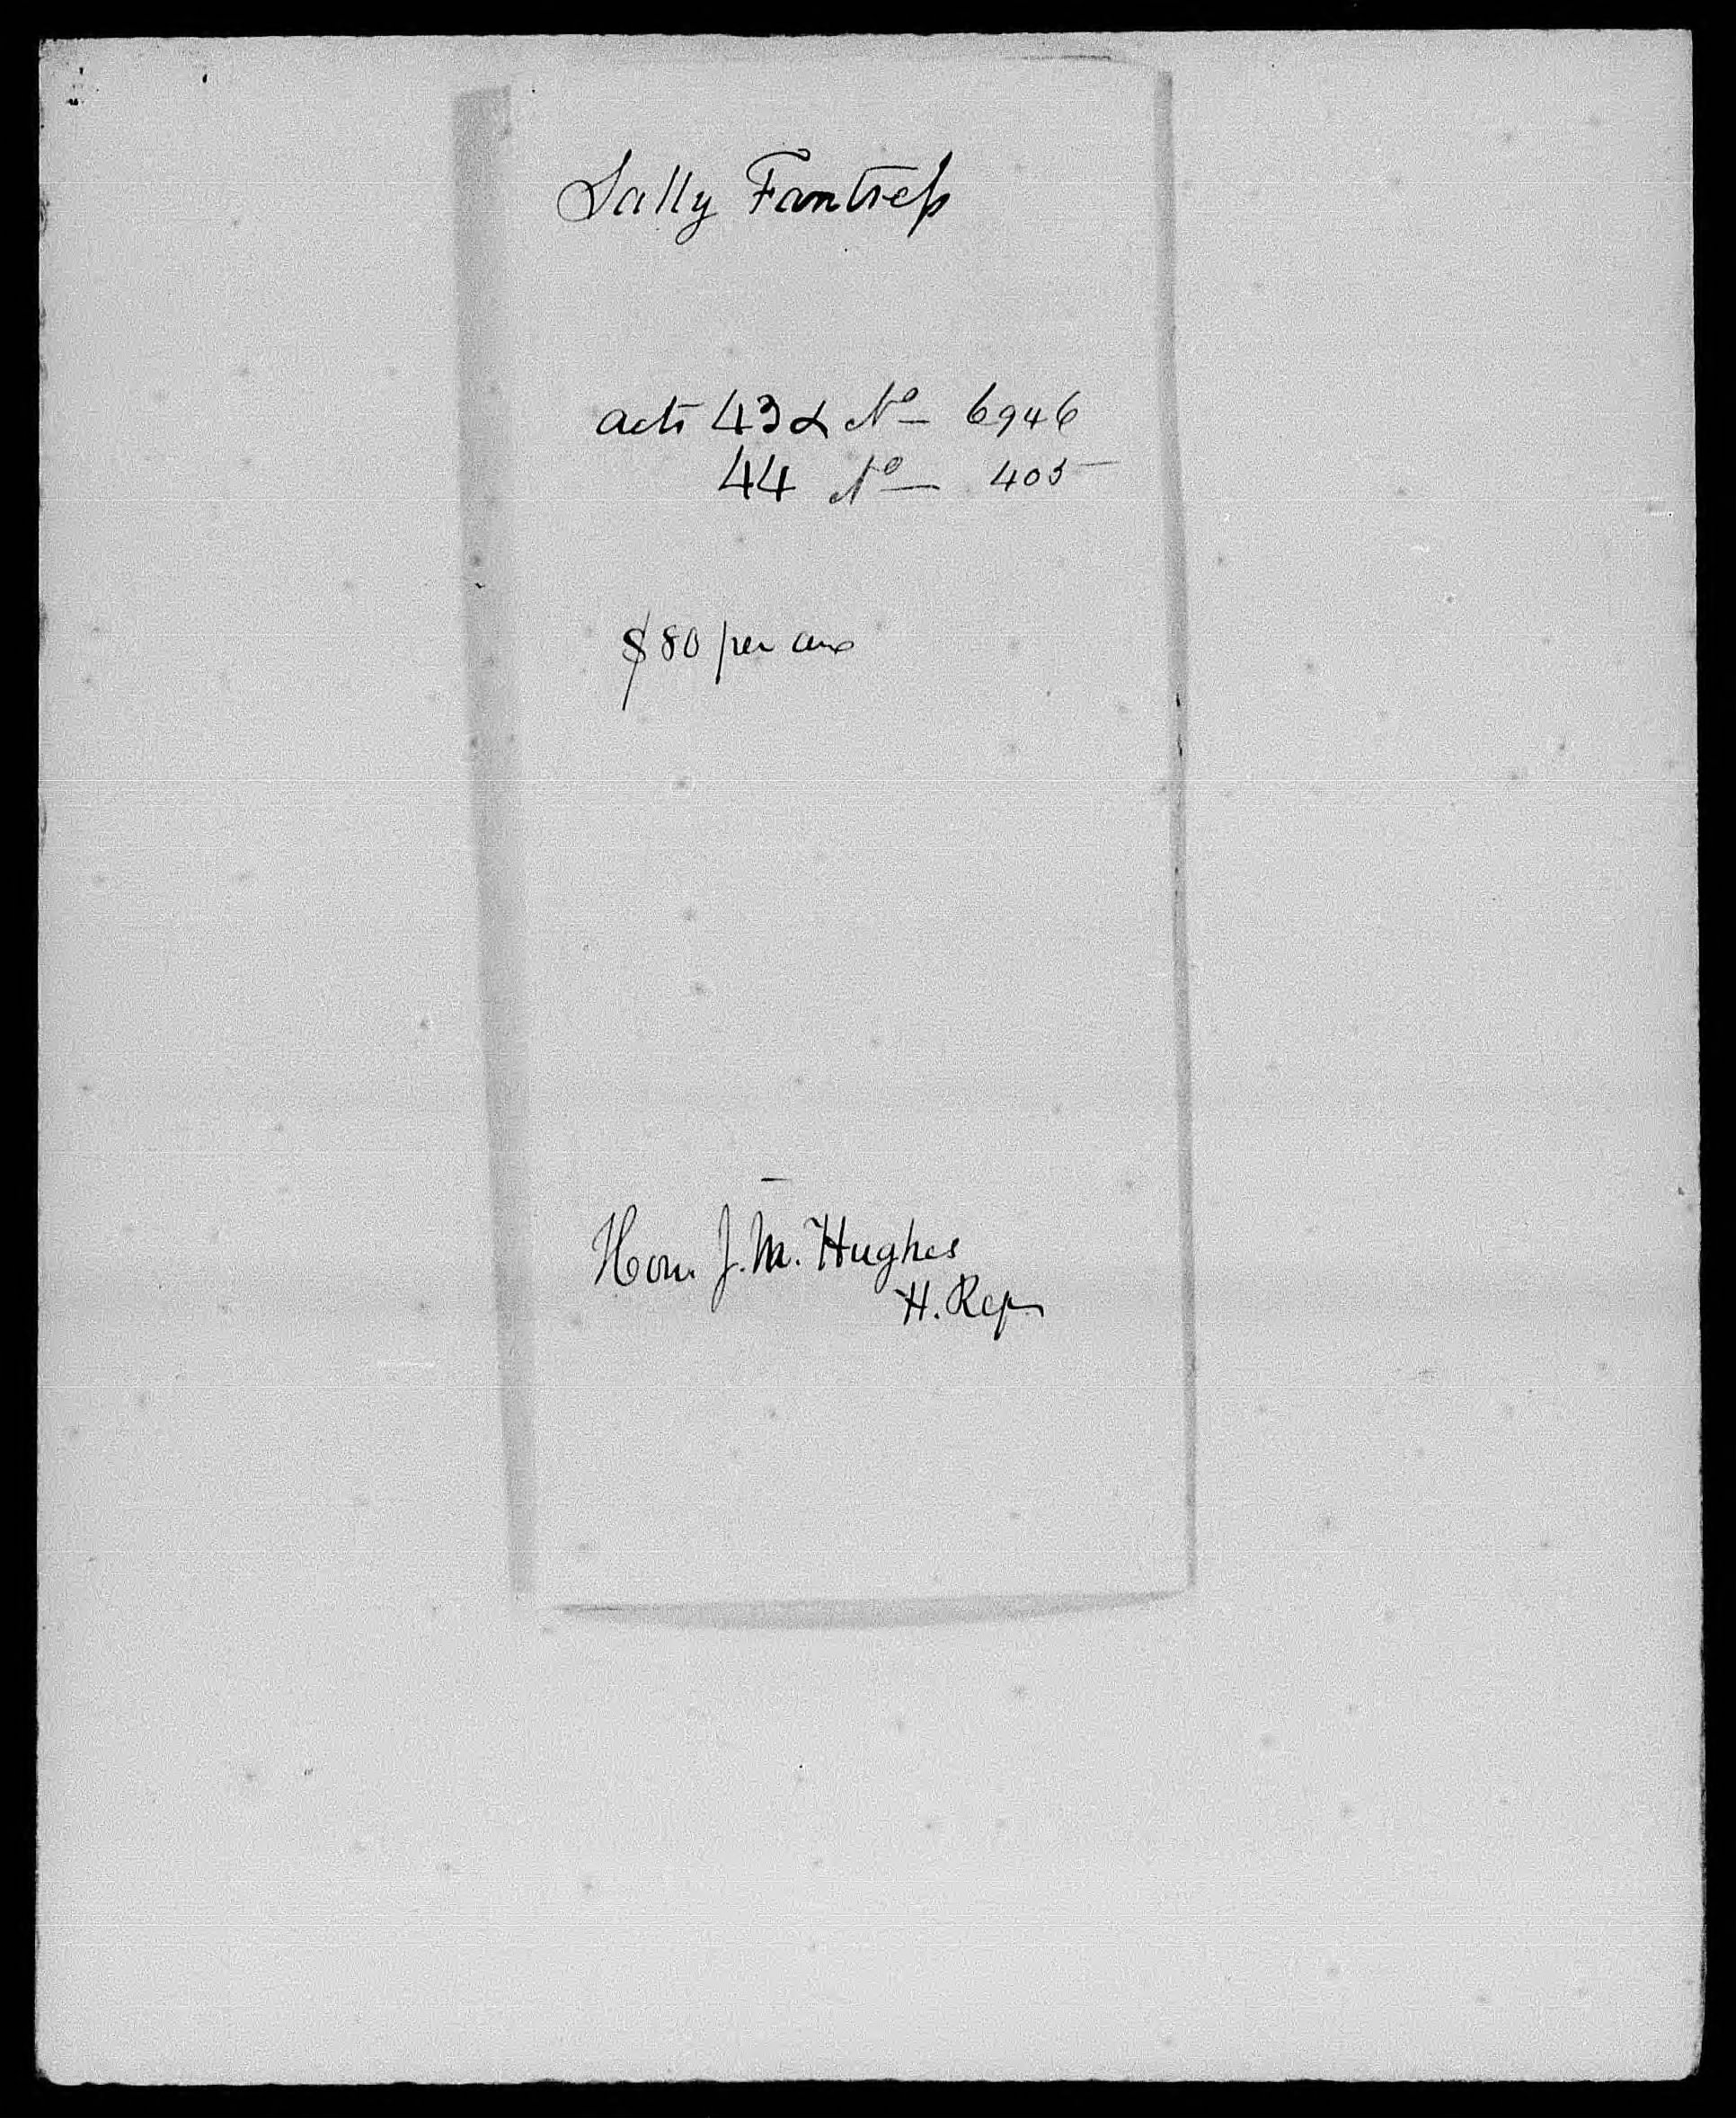 Sally Fantress
acts 43 & No 6946
44 No 405
$80 per ann
Hon. J. M. Hughes
H. Rep.